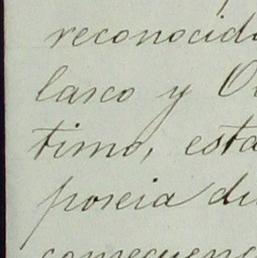 reconocid
lasco y O
timo, esta
poseia di
consecuenc